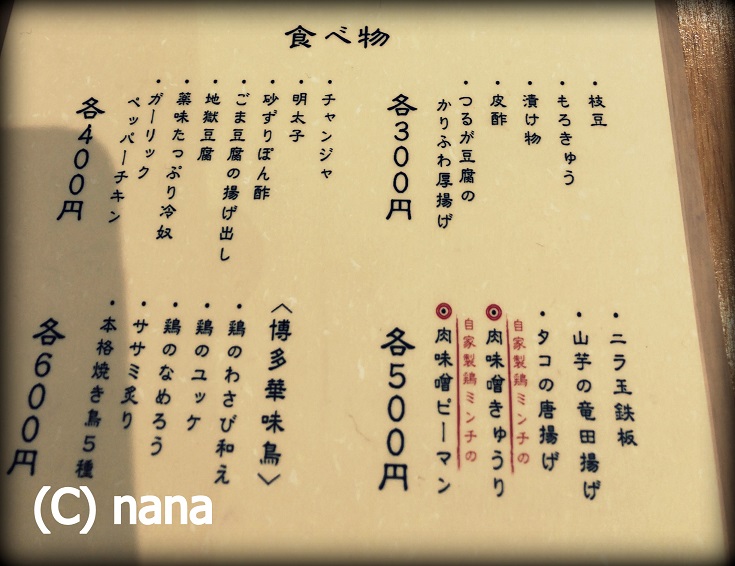 食べ物
・枝豆
・もろきゅう
・漬け物
・皮酢
・つるが豆腐の
かりふわ厚揚げ
各300円
・チャンジャ
・明太子
・砂ずりぽん酢
・ごま豆腐の揚げ出し
・地獄豆腐
・薬味たっぷり冷奴
・ガーリック
ペッパーチキン
各400円
・ニラ玉鉄板
・山芋の竜田揚げ
・タコの唐揚げ
自家製鶏ミンチの
肉味噌きゅうり
自家製鶏ミンチの
肉味噌ピーマン
各500円
〈博多華味鳥〉
・鶏のわさび和え
・鶏のユッケ
・鶏のなめろう
・ササミ炙り
・本格焼き鳥5種
各600円
(C) nana